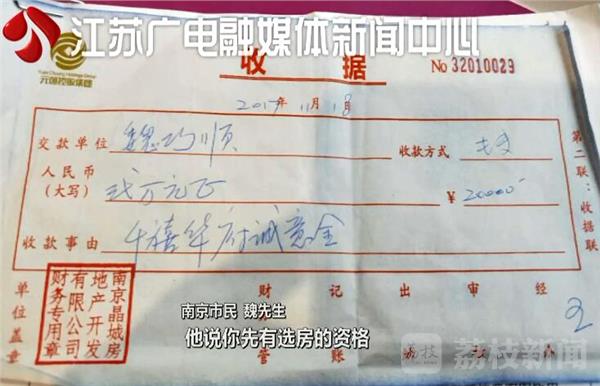 江苏广电融媒体新闻中心
Yuan Chuang Holdings Group
元创控股集团
收据
No 32010029
2017年11月18
交款单位 魏巧顺 收款方式
人民币
(大写) 贰万元正 ¥20000
收款事由 千禧华府诚意金
第二联:收据联
单位盖章
南京晶城房
地产开发
有限公司
财务专用章
财 记 出 审 经
管 账
南京市民 魏先生
他说你先有选房的资格
荔枝新闻